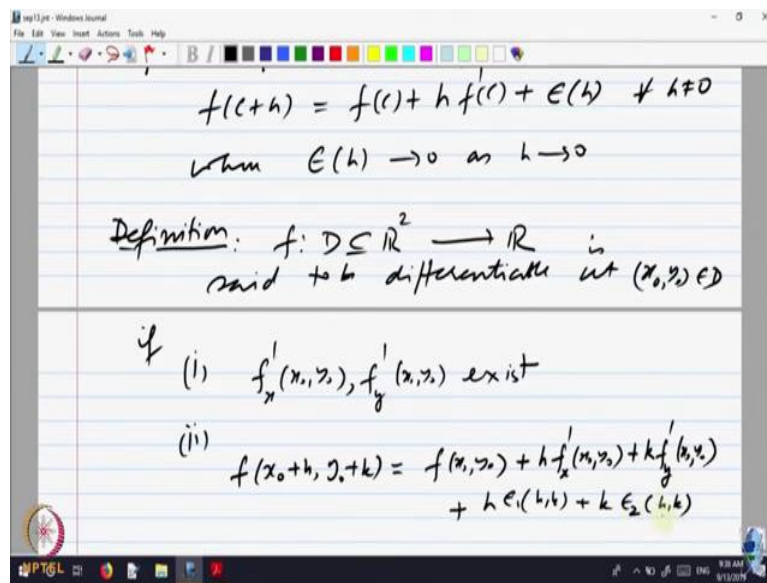 sep13.jnt - Windows Journal
File Edit View Insert Actions Tools Help
f(c+h) = f(c) + h f'(c) + ϵ(h) ∀ h≠0
when ϵ(h) → 0 as h → 0
Definition: f: D ⊆ ℝ² → ℝ is
said to be differentiable at (x₀,y₀) ∈ D
if
(i) f'ₓ(x₀,y₀), f'ᵧ(x₀,y₀) exist
(ii)
f(x₀+h, y₀+k) = f(x₀,y₀) + h f'ₓ(x₀,y₀) + k f'ᵧ(x₀,y₀)
+ h ϵ₁(h,k) + k ϵ₂(h,k)
NPTEL
ENG
9:38 AM
9/13/2019